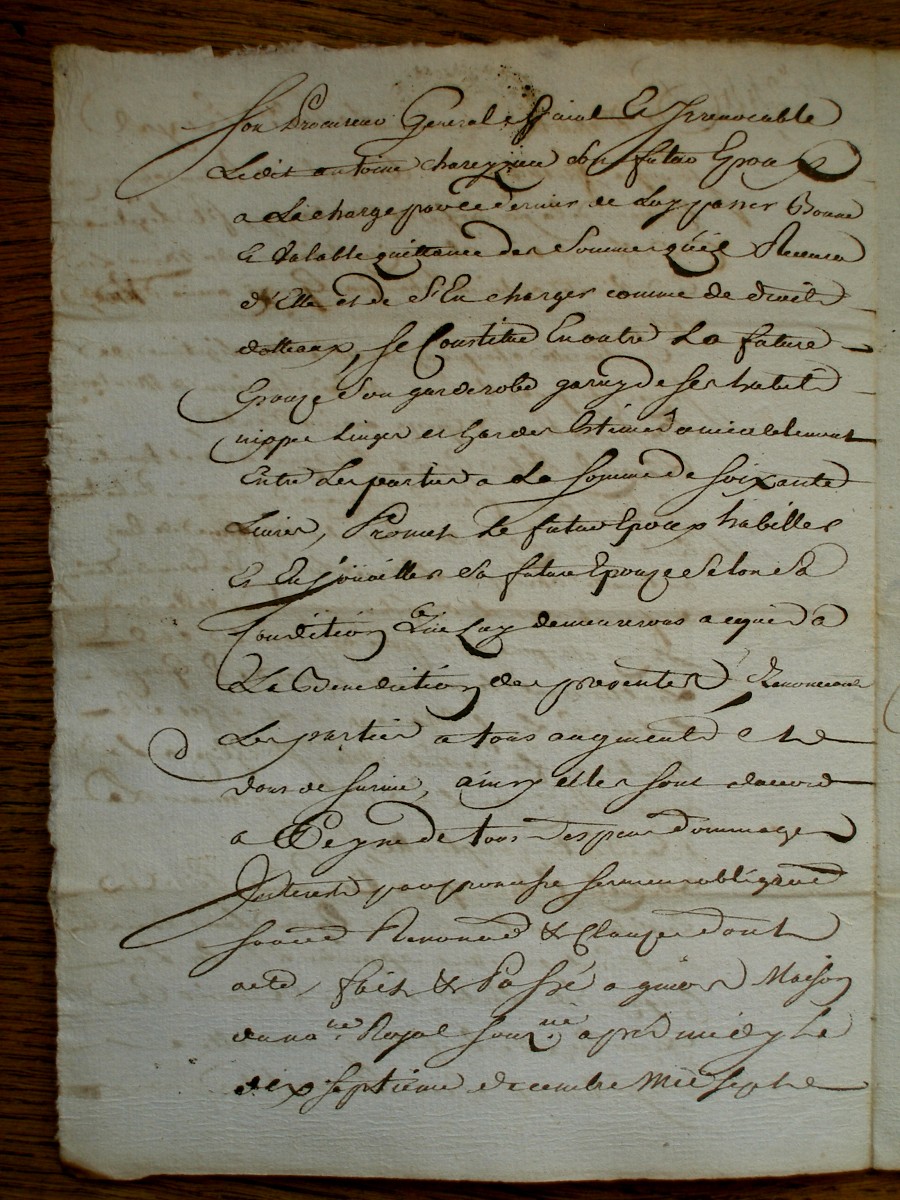 Son Procureur General espaial Et Irrevocable
Ledit antoine chareyzieu son futur Epoux
a La charge par ce dernier de Luy passer Bonne
Et valable quittance des Sommes qu'il Recevra
d'Elle et de s'En charger comme de droits
dotteaux, se Constitue En outre La future
Epouze son garderobe garny de ses habits
nippes Linges et hardes Estimés amicablement
Entre Les parties a La Somme de Soixante
Livres, Promet Le futur Epoux habiller
Et En joüailler sa future Epouze Selon Sa
Condition Luy demeurera acquis a
La Benediction des presentes Renonceant
Les parties a tous augments Et
dons de survie, ainsy elles sont daccord
a Peyne de tous despens Dommages
Interests par promesse serment obligaõn
soumõn Renonõn & Clauzes dont
acte, fait & Passé a Maison
du no.re Royal sous.né après midy Le
dix Septieme decembre Mil Sept